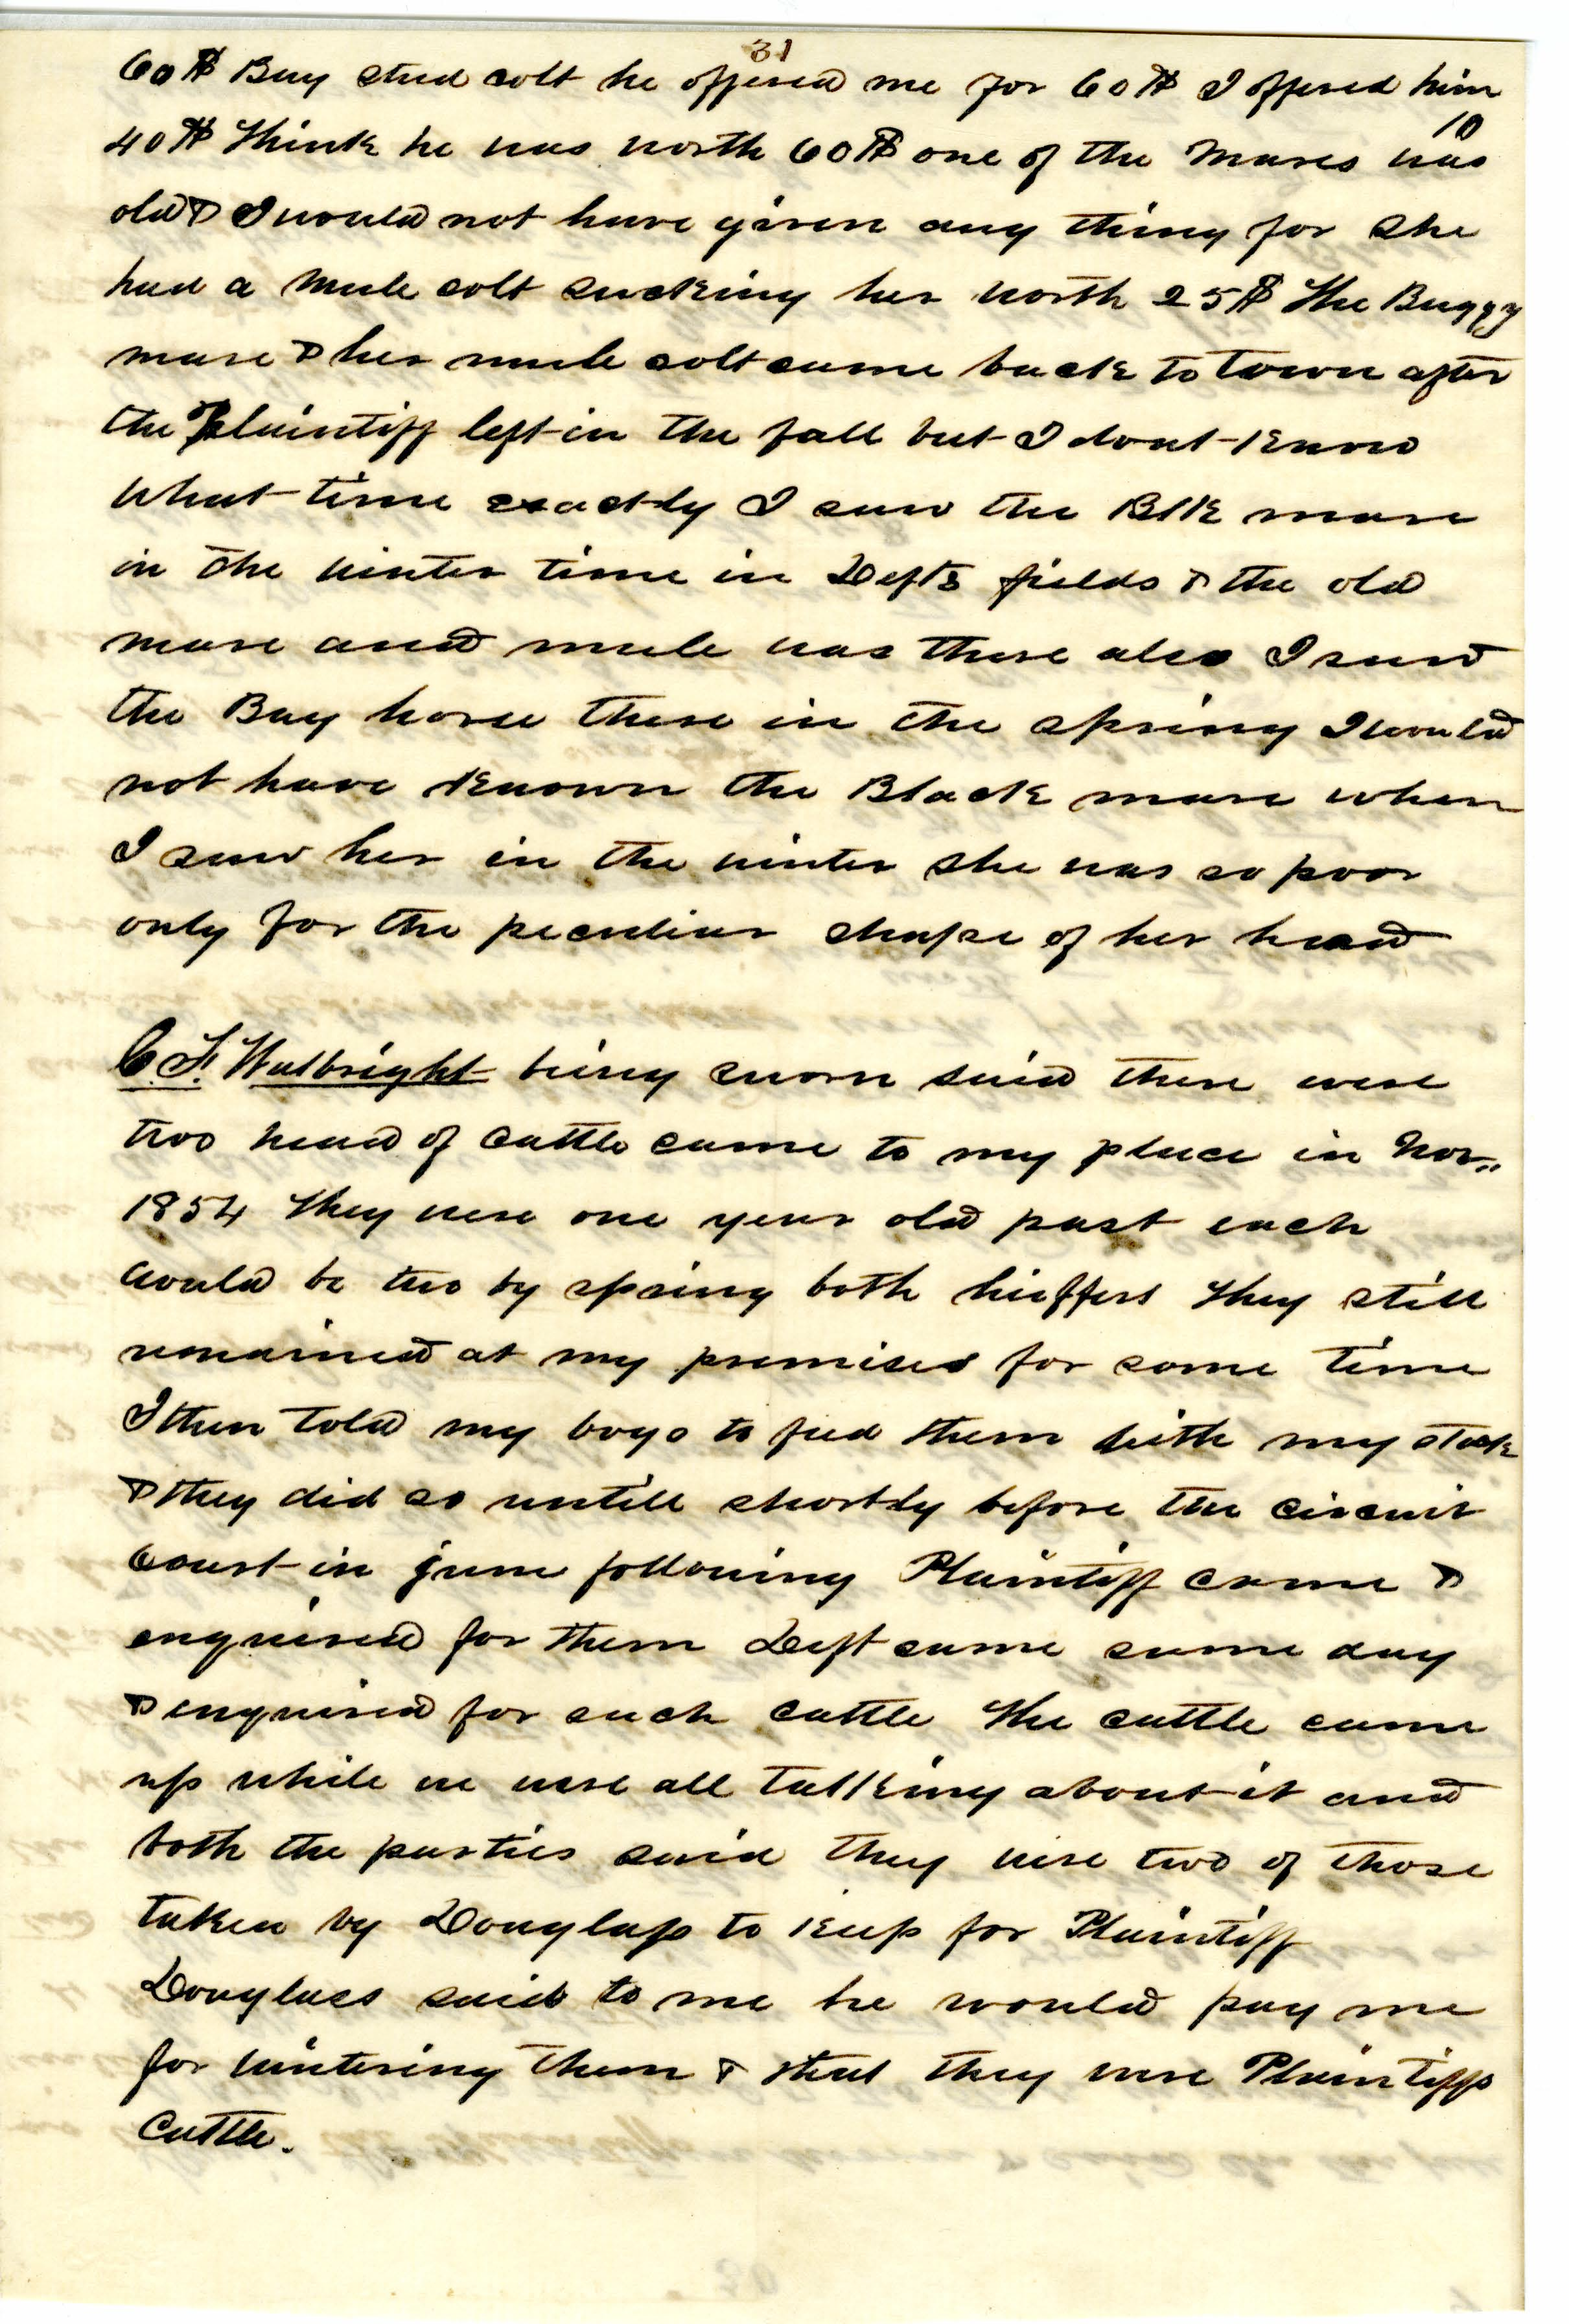 31
60$ Bay stud colt he offered me for 60$ I offered him
10
40$ think he was worth 60$ one of the Mares was
old & I would not have given any thing for she
had a Mule colt sucking her worth 25$ The Buggy
mare & her mule colt came back to town after
the Plaintiff left in the fall but I dont know
what time exactly I saw the Blk mare
in the winter time in Defts fields & the old
mare and mule was there also I saw
the Bay horse there in the spring I would
not have known the Black mare when
I saw her in the winter she was so poor
only for the peculiar shape of her head
C. F. Walbright being sworn said there were
two head of Cattle came to my place in Nov..
1854 they were one year old past each
would be two by spring both hieffers they still
remained at my premises for some time
I then told my boys to feed them with my stock
& they did so untill shortly before the circuit
Court in june following Plaintiff came &
enquired for them Deft came same day
& enquired for such cattle the cattle came
up while we were all talking about it and
both the parties said they were two of those
taken by Douglass to keep for Plaintiff
Douglass said to me he would pay me
for wintering them & that they were Plaintiffs
Cattle.